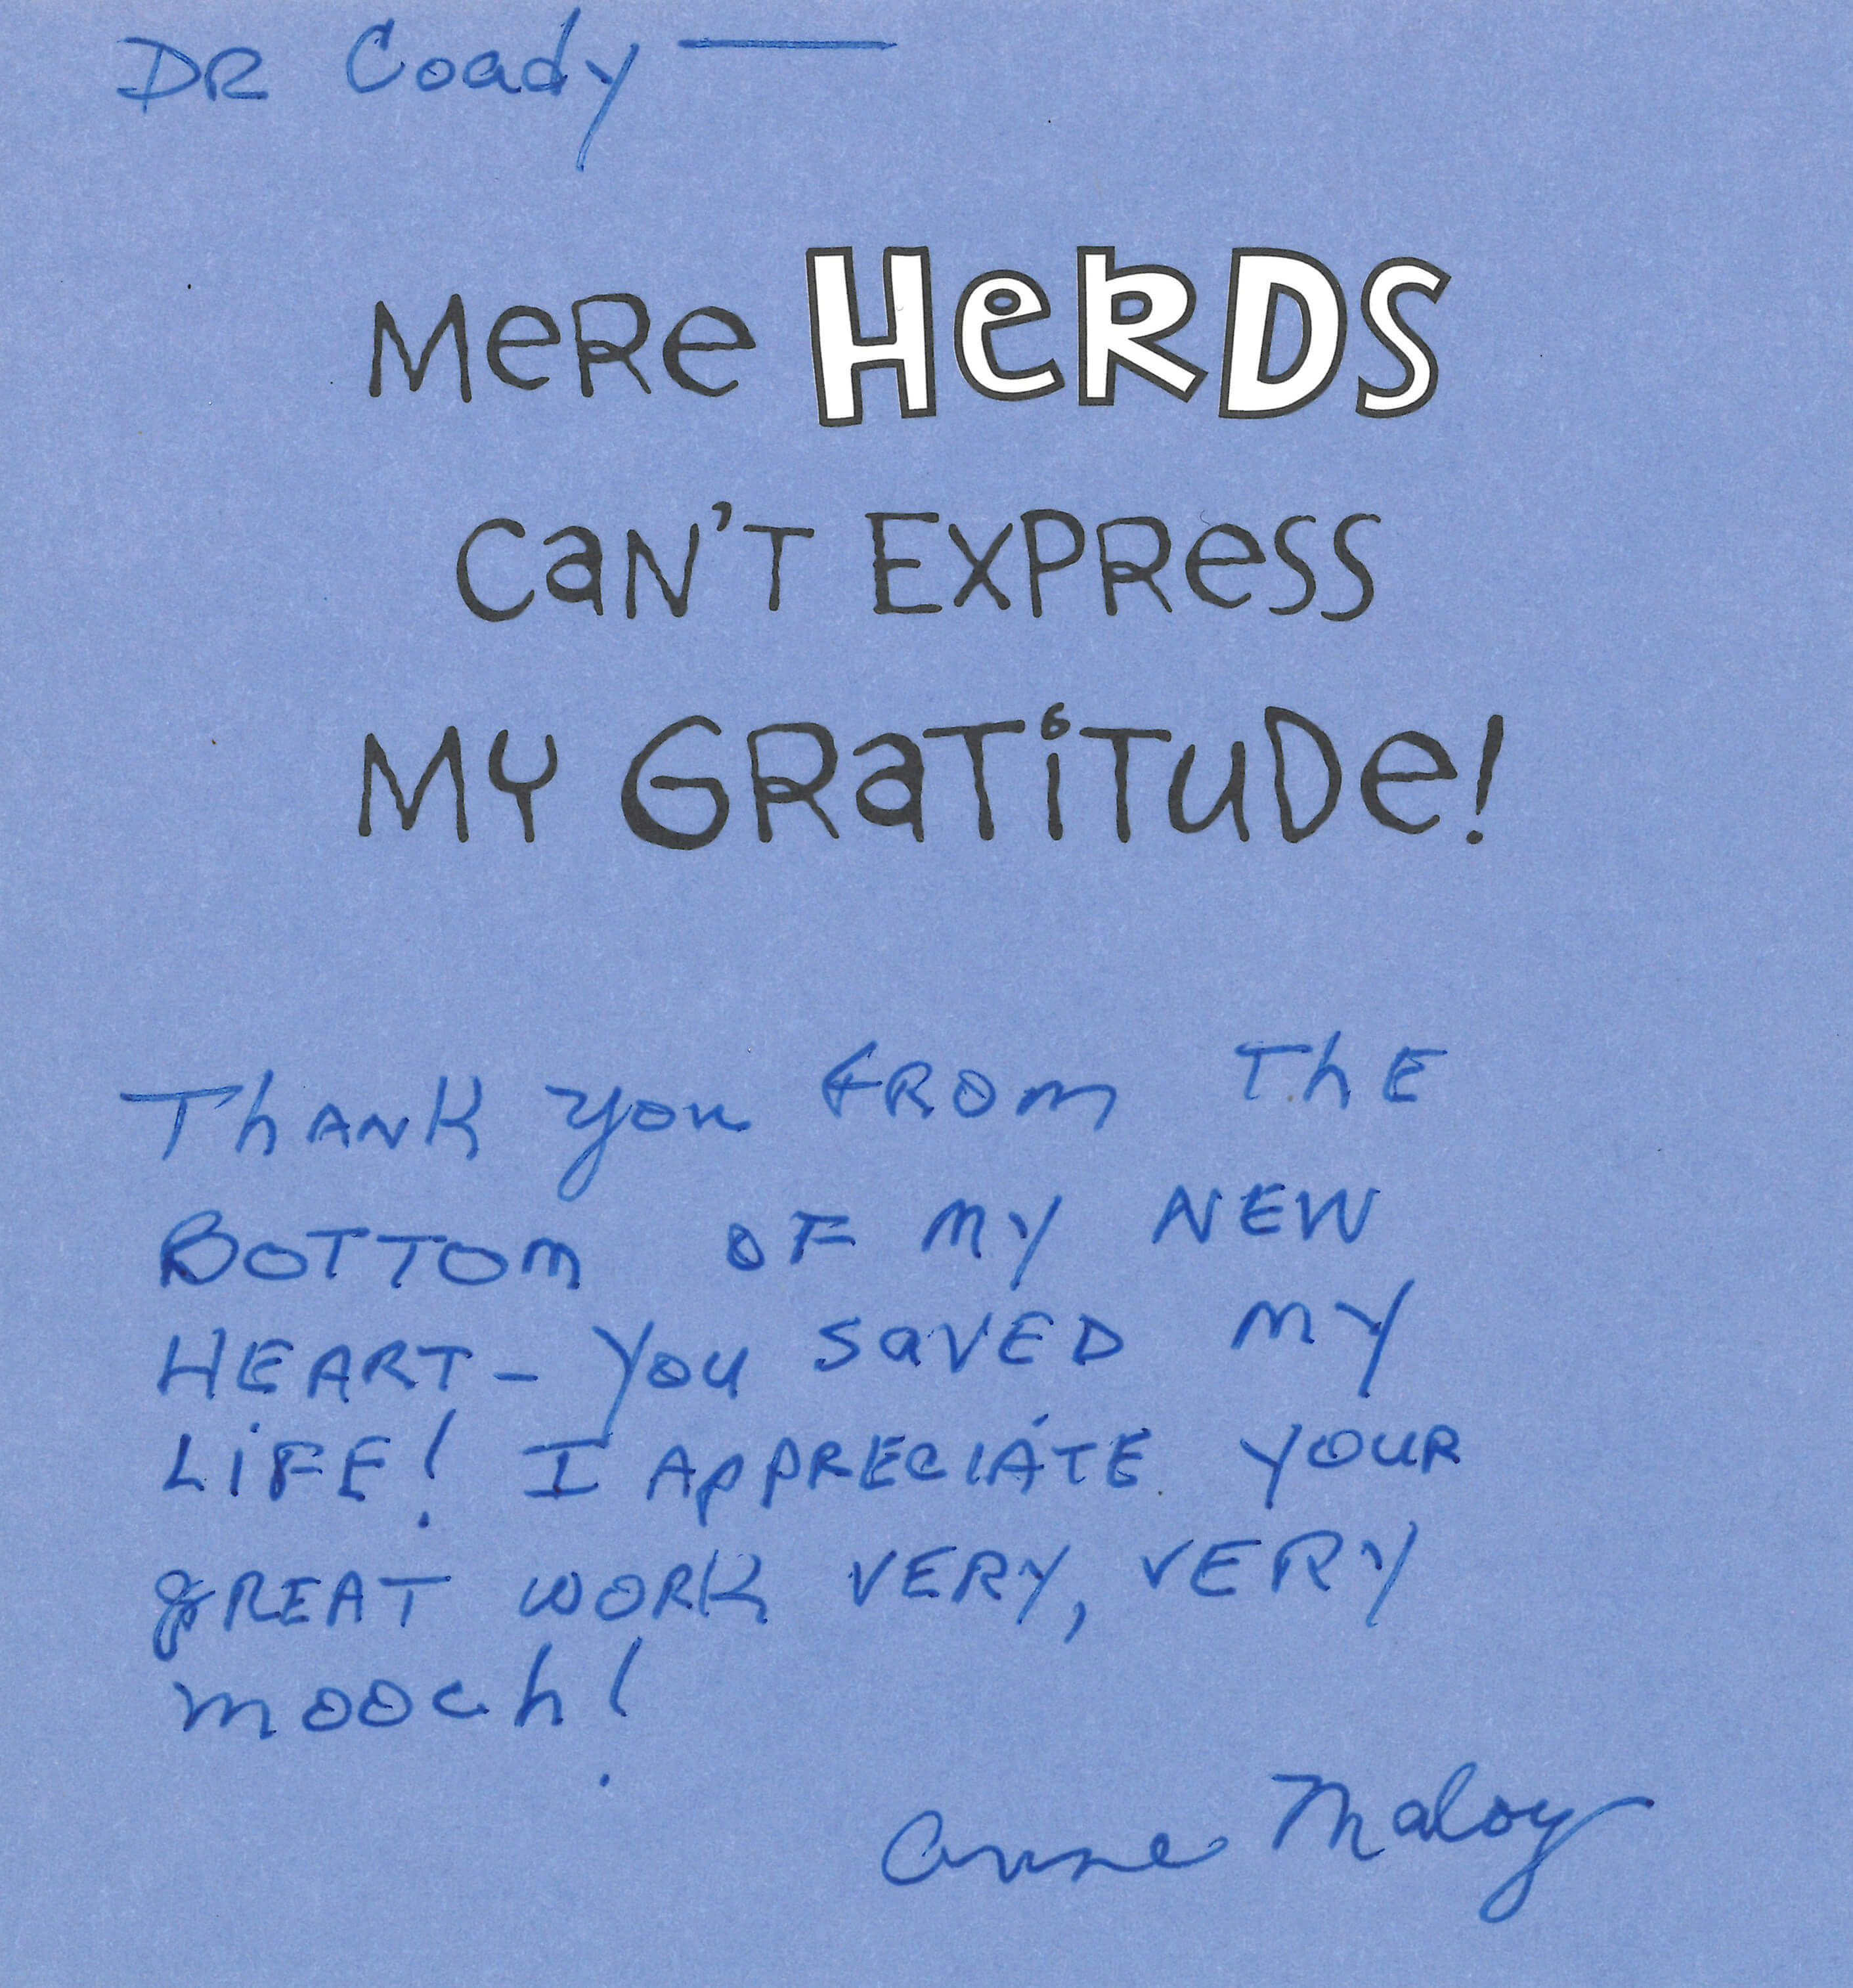 DR Coady —
MeRe HeRDS
CaN'T EXPRess
MY GRaTiTuDe!
ThANK you FROm ThE
BOTTOm OF MY NEW
HEART - You SaVED MY
LiFE! I APPRECIATE YOUR
gREAT WORK VERY, VERY
mooch!
Anne Maloy